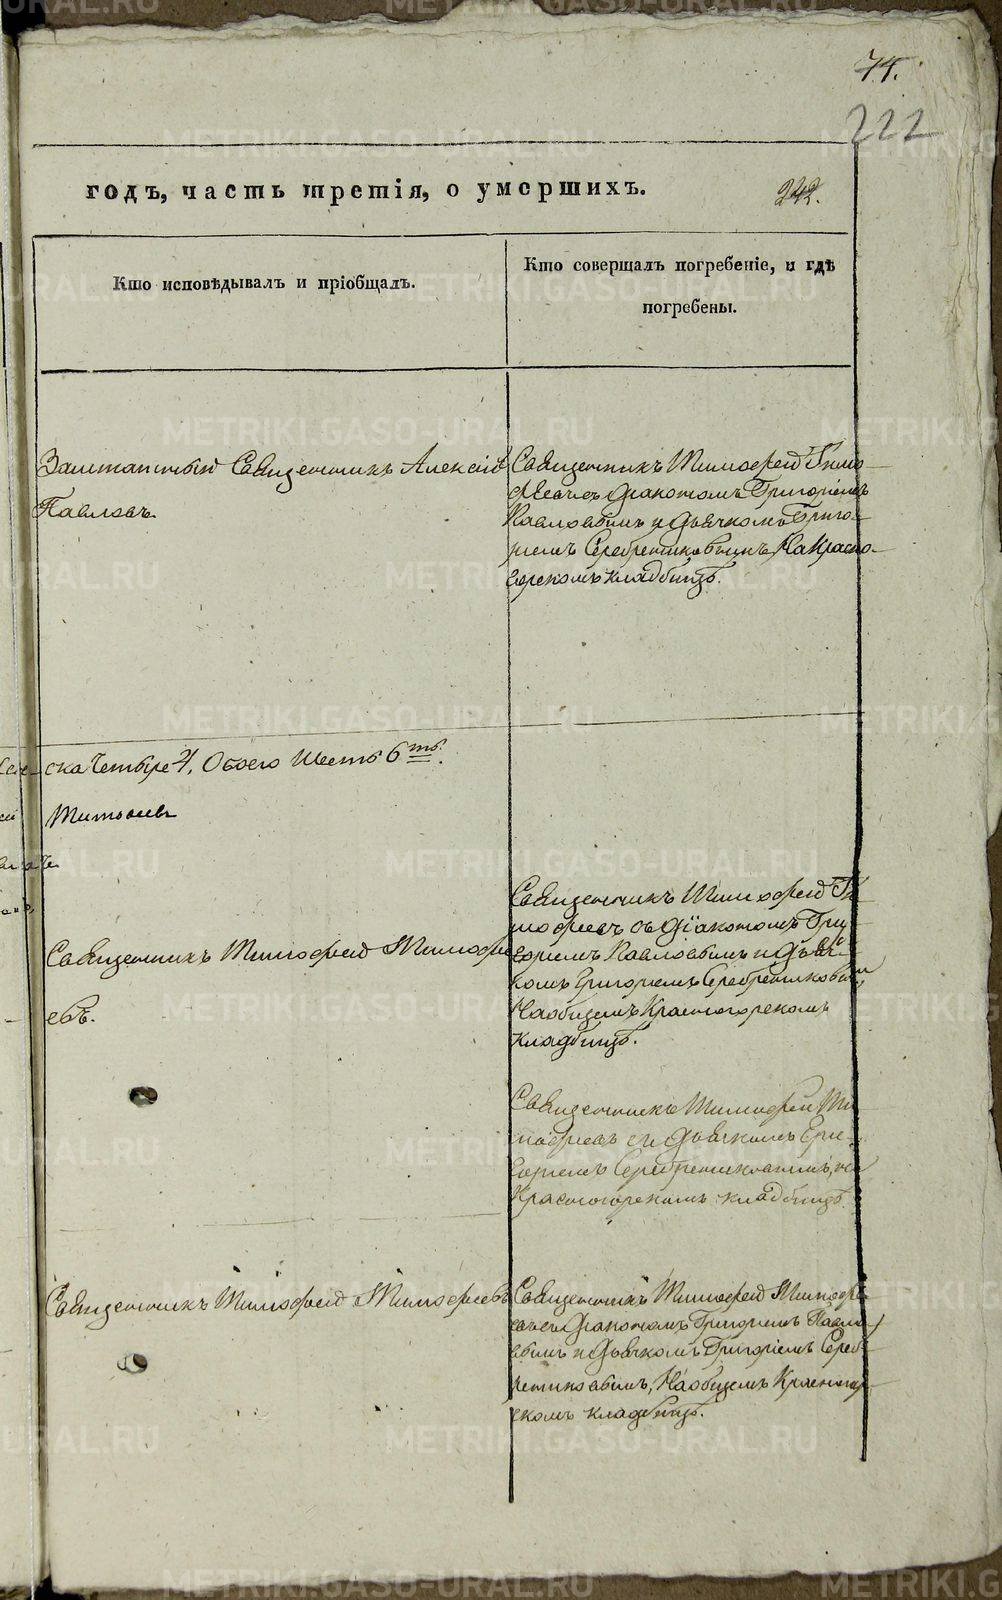 74.
222
годъ, часть третія, о умершихъ.
242.
Кто исповѣдывалъ и пріобщалъ.
Кто совершалъ погребеніе, и гдѣ
погребены.
Заштатный Священникъ Алексій
Павловъ.
Священникъ Тимофей Тимо-
феевъ съ Діакономъ Григоріемъ
Павловымъ и Дьячкомъ Григо-
ріемъ Серебренниковымъ, На Красно-
горскомъ кладбищѣ.
ска Четыре 4, Обоего Шесть 6ть.
Титовъ
Священникъ Тимофей Тимофе
евъ.
Священникъ Тимофей Ти
мофеевъ съ Діакономъ Гри
горіемъ Павловымъ и Дьяч-
комъ Григоріемъ Серебренниковымъ
На общемъ Красногорскомъ
кладбищѣ.
Священникъ Тимофей Ти
мофеевъ съ Дьячкомъ Гри-
горіемъ Серебренниковымъ, на
Красногорскомъ кладбищѣ.
Священникъ Тимофей Тимофеевъ
Священникъ Тимофей Тимофе
евъ съ Діакономъ Григоріемъ Павло
вымъ и Дьячкомъ Григоріемъ Сереб-
ренниковымъ, На общемъ Красногор-
скомъ кладбищѣ.
METRIKI.GASO-URAL.RU